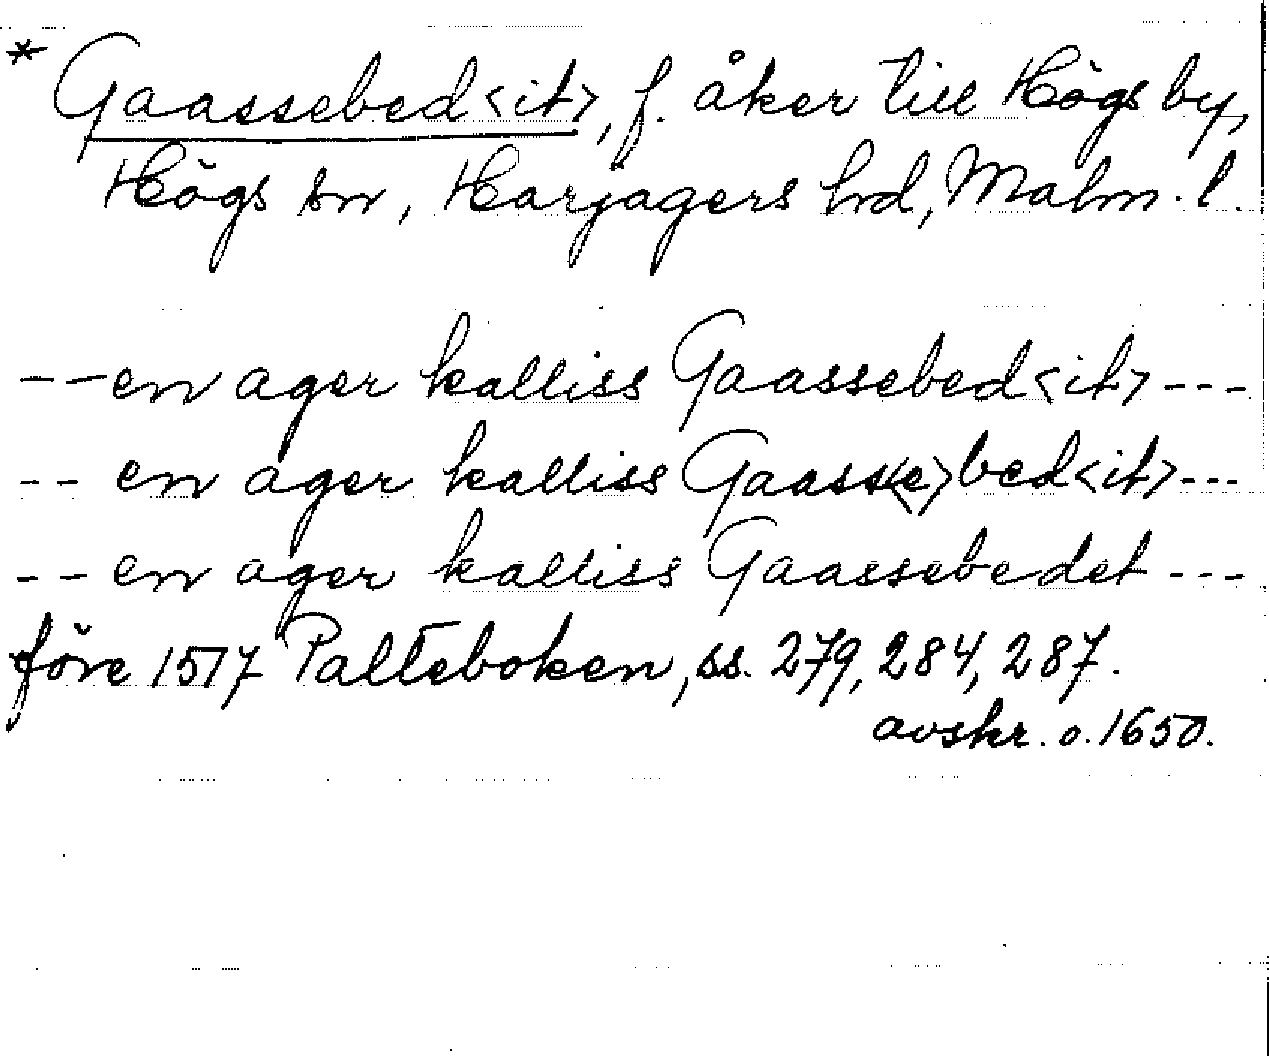 * Gaassebed<it>, f. åker till Högs by,
Högs sn, Harjagers hd, Malm. l.
-- en ager kalliss Gaassebed<it> ---
-- en ager kalliss Gaass<e>bed<it> ---
-- en ager kalliss Gaassebedet ---
före 1517 Palteboken, ss. 279, 284, 287.
avskr. o. 1650.